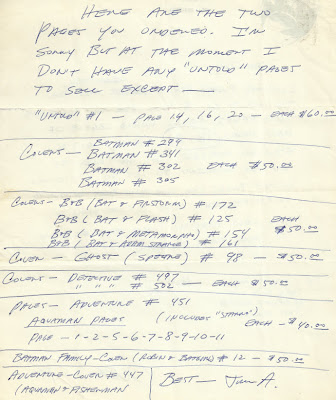 HERE ARE THE TWO
PAGES YOU ORDERED. I'M
SORRY BUT AT THE MOMENT I
DON'T HAVE ANY "UNTOLD" PAGES
TO SELL EXCEPT —
"UNTOLD" #1 — PAGE 14, 16, 20 — EACH $60.00
COVERS — BATMAN # 294
BATMAN # 341
BATMAN # 302 EACH $50.00
BATMAN # 305
COVERS — B+B (BAT & FIRSTORM) # 172
B+B (BAT & FLASH) # 125 EACH
B+B (BAT & METAMORPHO) # 154 $50.00
B+B (BAT & ADAM STRANGE) # 161
COVER — GHOST (SPECTRE) # 98 — $50.00
COVERS — DETECTIVE # 497
" " " # 502 — EACH — $50.00
PAGES — ADVENTURE # 451
AQUAMAN PAGES (INCLUDES "STARRO") EACH — $40.00
PAGE — 1-2-5-6-7-8-9-10-11
BATMAN FAMILY — COVER (ROBIN & BATGIRL) # 12 — $50.00
ADVENTURE — COVER # 447
(AQUAMAN & FISHERMAN
BEST — Jim A.